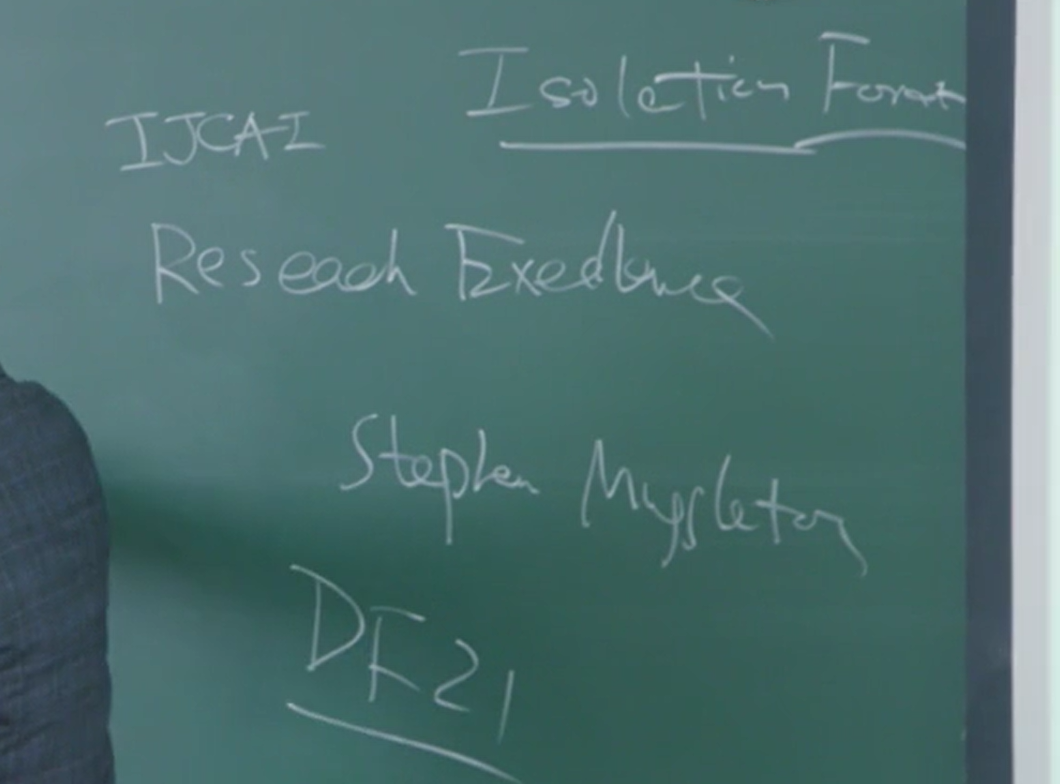 Isolation Forest
IJCAI
Reseach Excellence
Stephen Muggleton
DF21